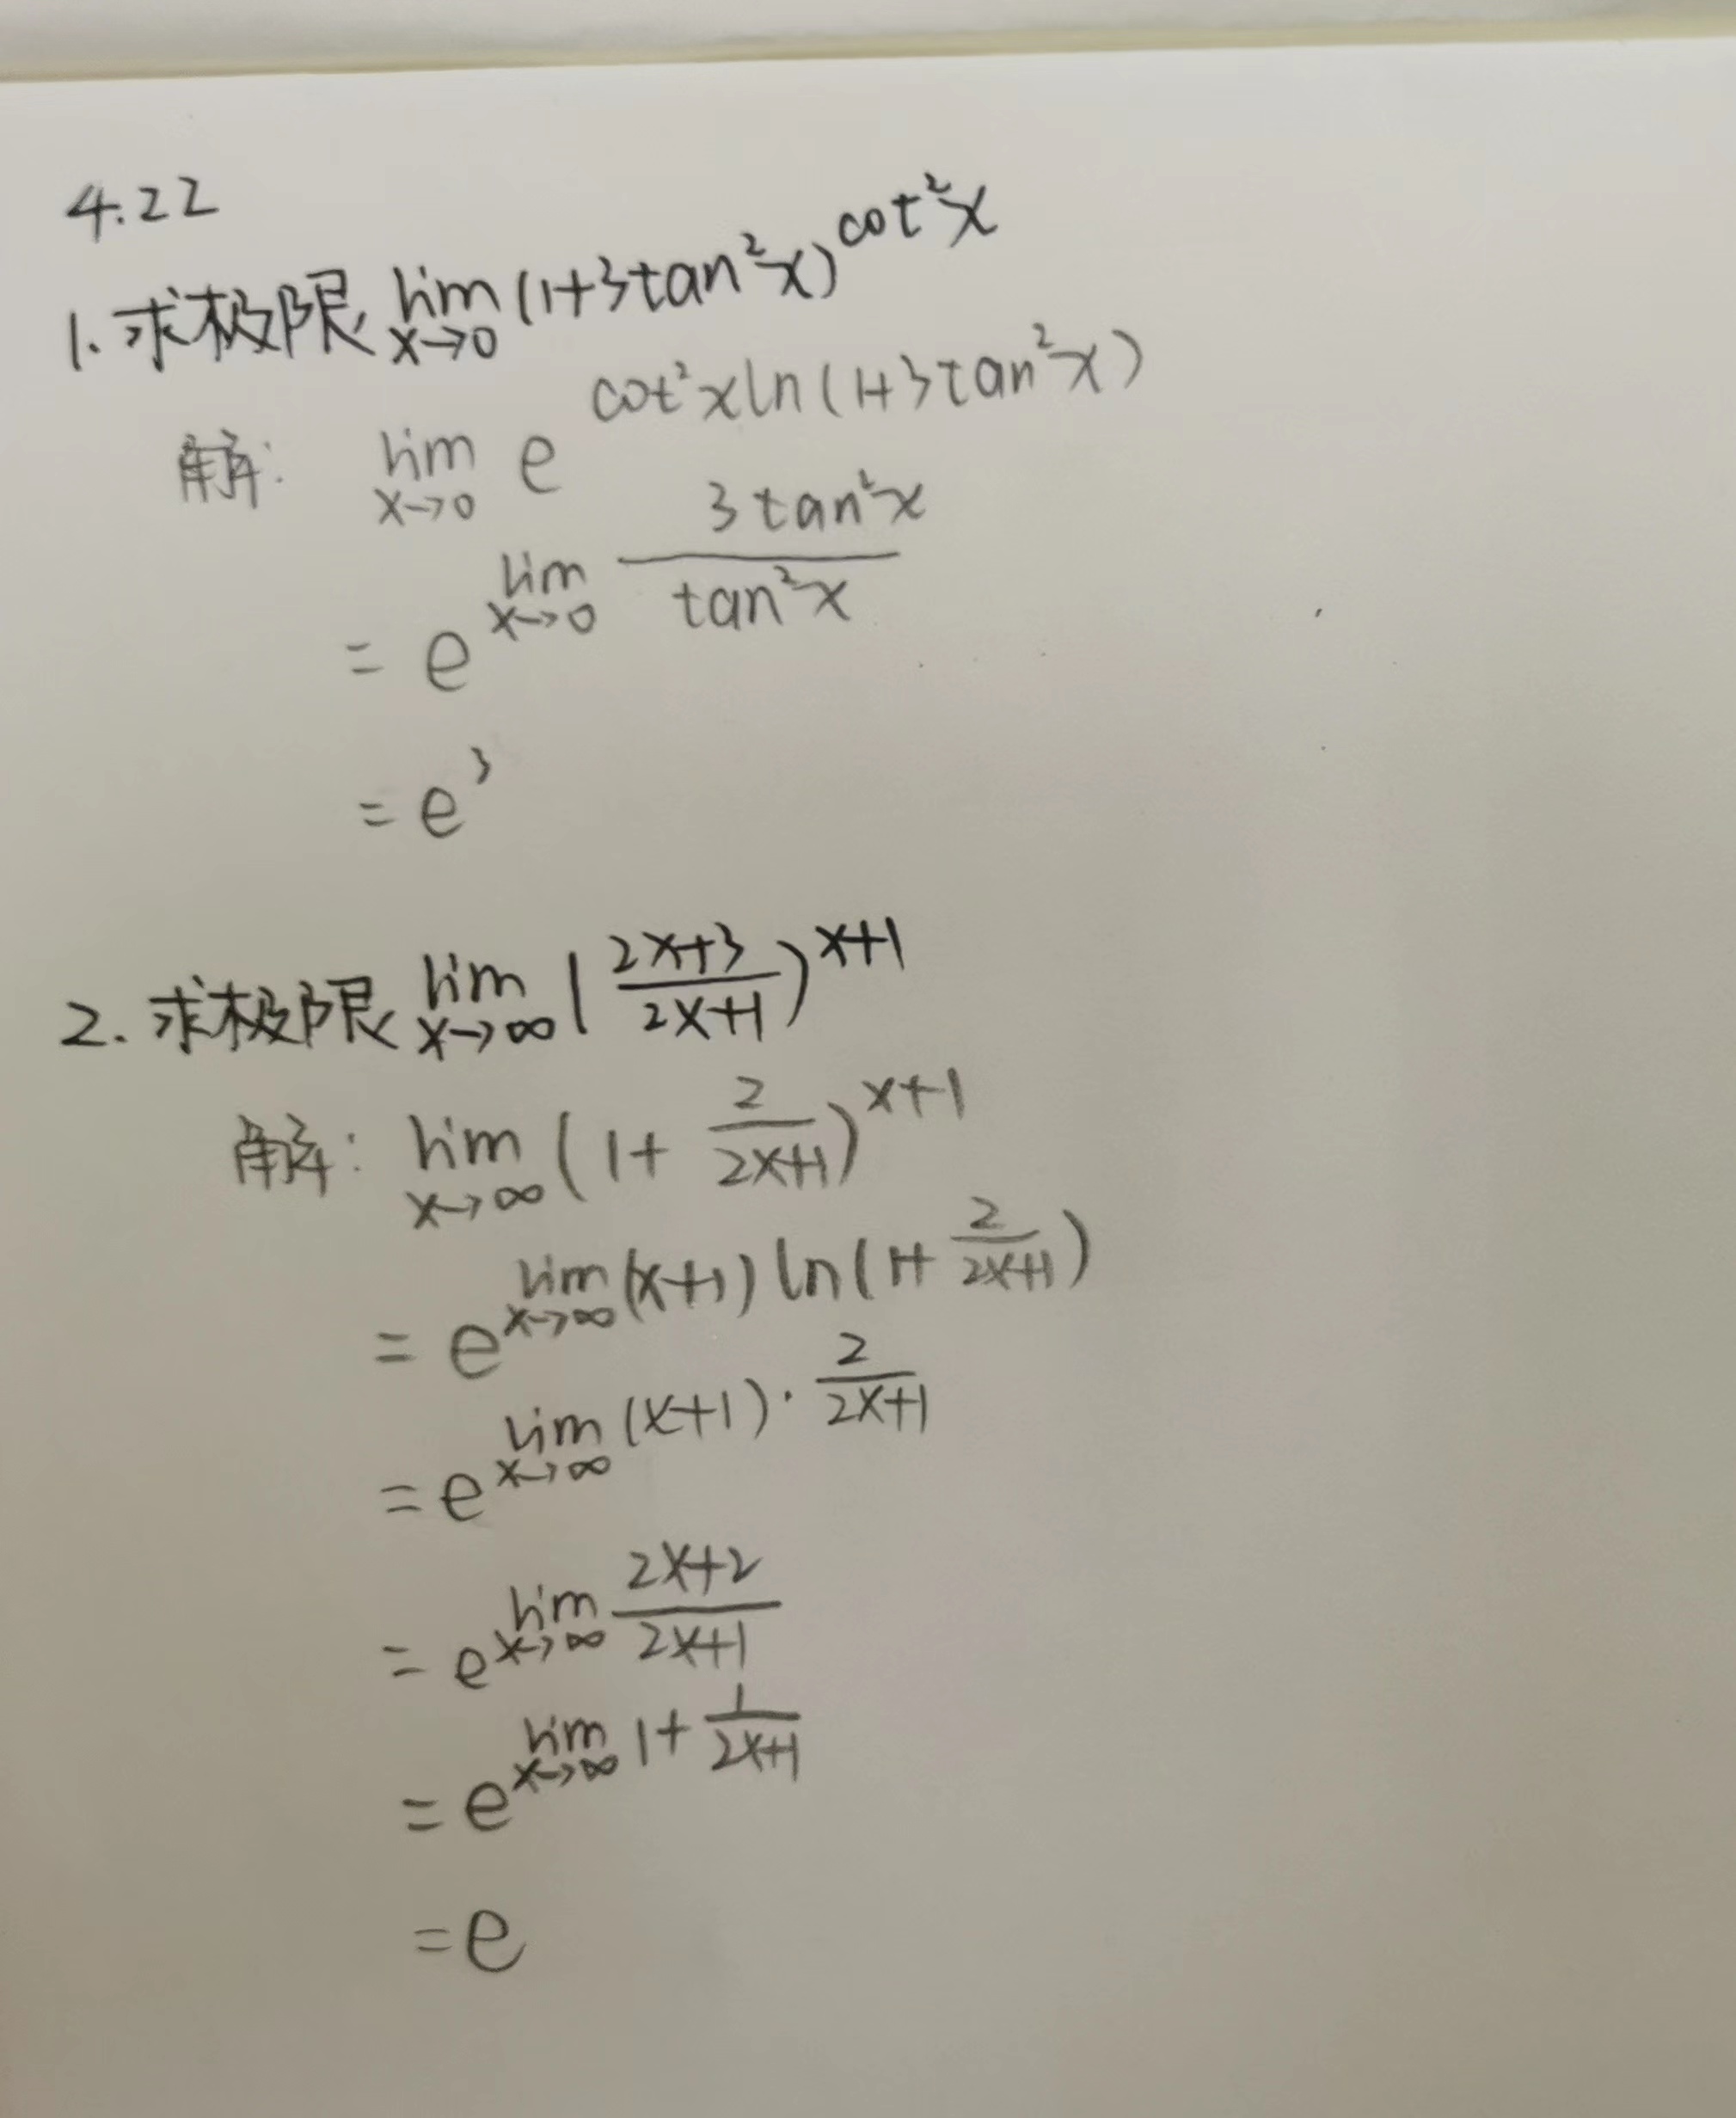 4.22
1. 求极限 lim_{x→0} (1+3tan²x)^{cot²x}
解: lim_{x→0} e^{cot²x ln(1+3tan²x)}
= e^{lim_{x→0} \frac{3tan²x}{tan²x}}
= e³
2. 求极限 lim_{x→∞} (\frac{2x+3}{2x+1})^{x+1}
解: lim_{x→∞} (1+\frac{2}{2x+1})^{x+1}
= e^{lim_{x→∞} (x+1) ln(1+\frac{2}{2x+1})}
= e^{lim_{x→∞} (x+1)·\frac{2}{2x+1}}
= e^{lim_{x→∞} \frac{2x+2}{2x+1}}
= e^{lim_{x→∞} 1+\frac{1}{2x+1}}
= e